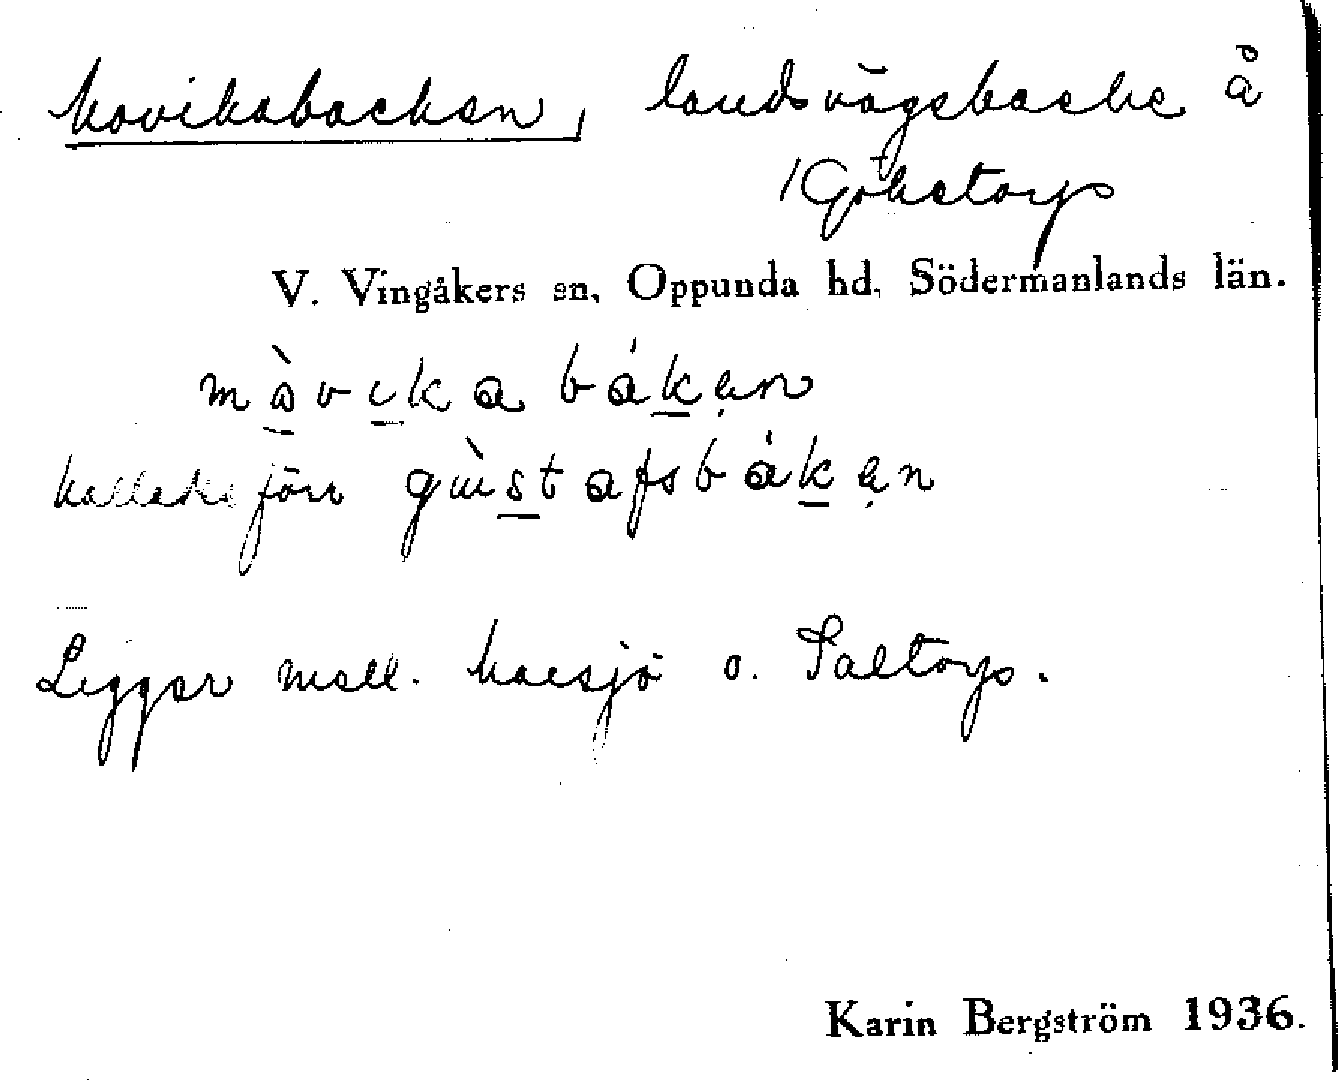 Kovikabacken, landsvägsbacke å
Gökstorp
V. Vingåkers sn, Oppunda hd, Södermanlands län.
bàkan
kallades förr gùstafsbàkan
Ligger mell. Kolsjö o. Taltorp.
Karin Bergström 1936.